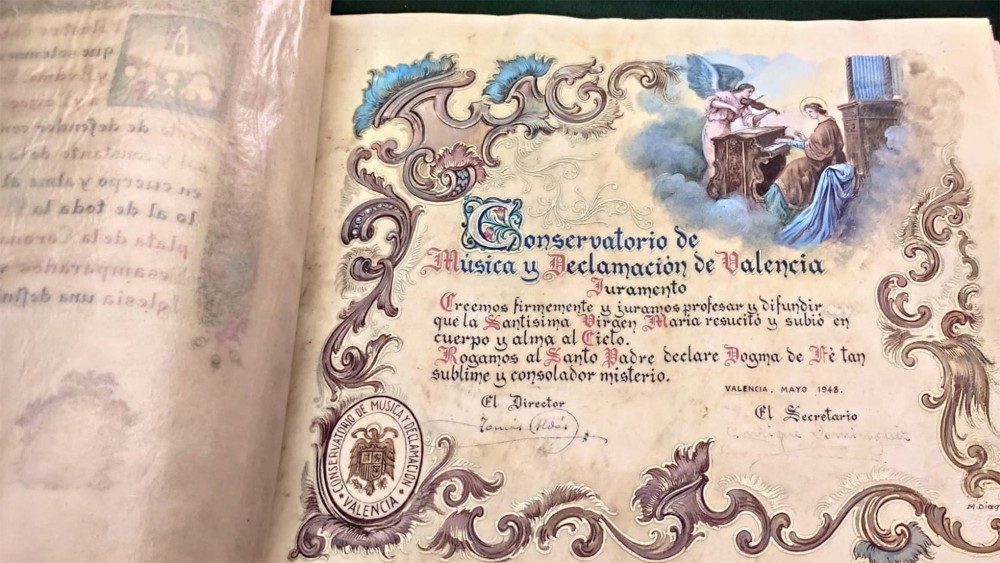 que solemne
de defender con
en cuerpo y alma al
lo al de toda la
plata de la Corona
Desamparados
Iglesia una defini
Conservatorio de
Música y Declamación de Valencia
Juramento
Creemos firmemente y juramos profesar y difundir
que la Santísima Virgen María resucitó y subió en
cuerpo y alma al Cielo.
Rogamos al Santo Padre declare Dogma de Fé tan
sublime y consolador misterio.
VALENCIA, MAYO 1948.
El Director
El Secretario
Tomás Aldás
Enrique Dominguez
CONSERVATORIO DE MUSICA Y DECLAMACION
VALENCIA
M. Diag